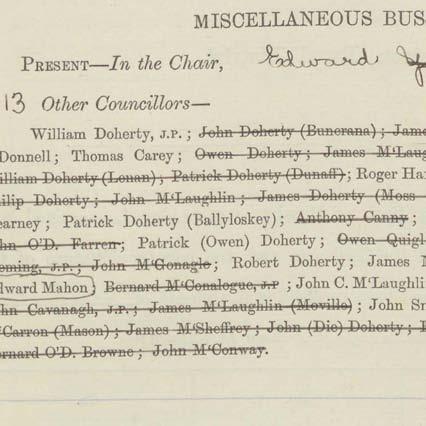 MISCELLANEOUS BUS
PRESENT—In the Chair, Edward
13 Other Councillors—
William Doherty, J.P.; John Doherty (Bunerana); Jame
Donnell; Thomas Carey; Owen Doherty; James M'Laug
illiam Doherty (Lenan); Patrick Doherty (Dunaff); Roger Ha
hilip Doherty; John M'Laughlin; James Doherty (Moss
earney; Patrick Doherty (Ballyloskey); Anthony Canny;
hn O'D. Farren; Patrick (Owen) Doherty; Owen Quigl
eming, J.P.; John M'Gonagle; Robert Doherty; James M
dward Mahon) Bernard M'Conalogue, J.P; John C. M'Laughlin
hn Cavanagh, J.P.; James M'Laughlin (Moville); John Sm
'Carron (Mason); James M'Sheffrey; John (Die) Doherty;
ernard O'D. Browne; John M'Conway.